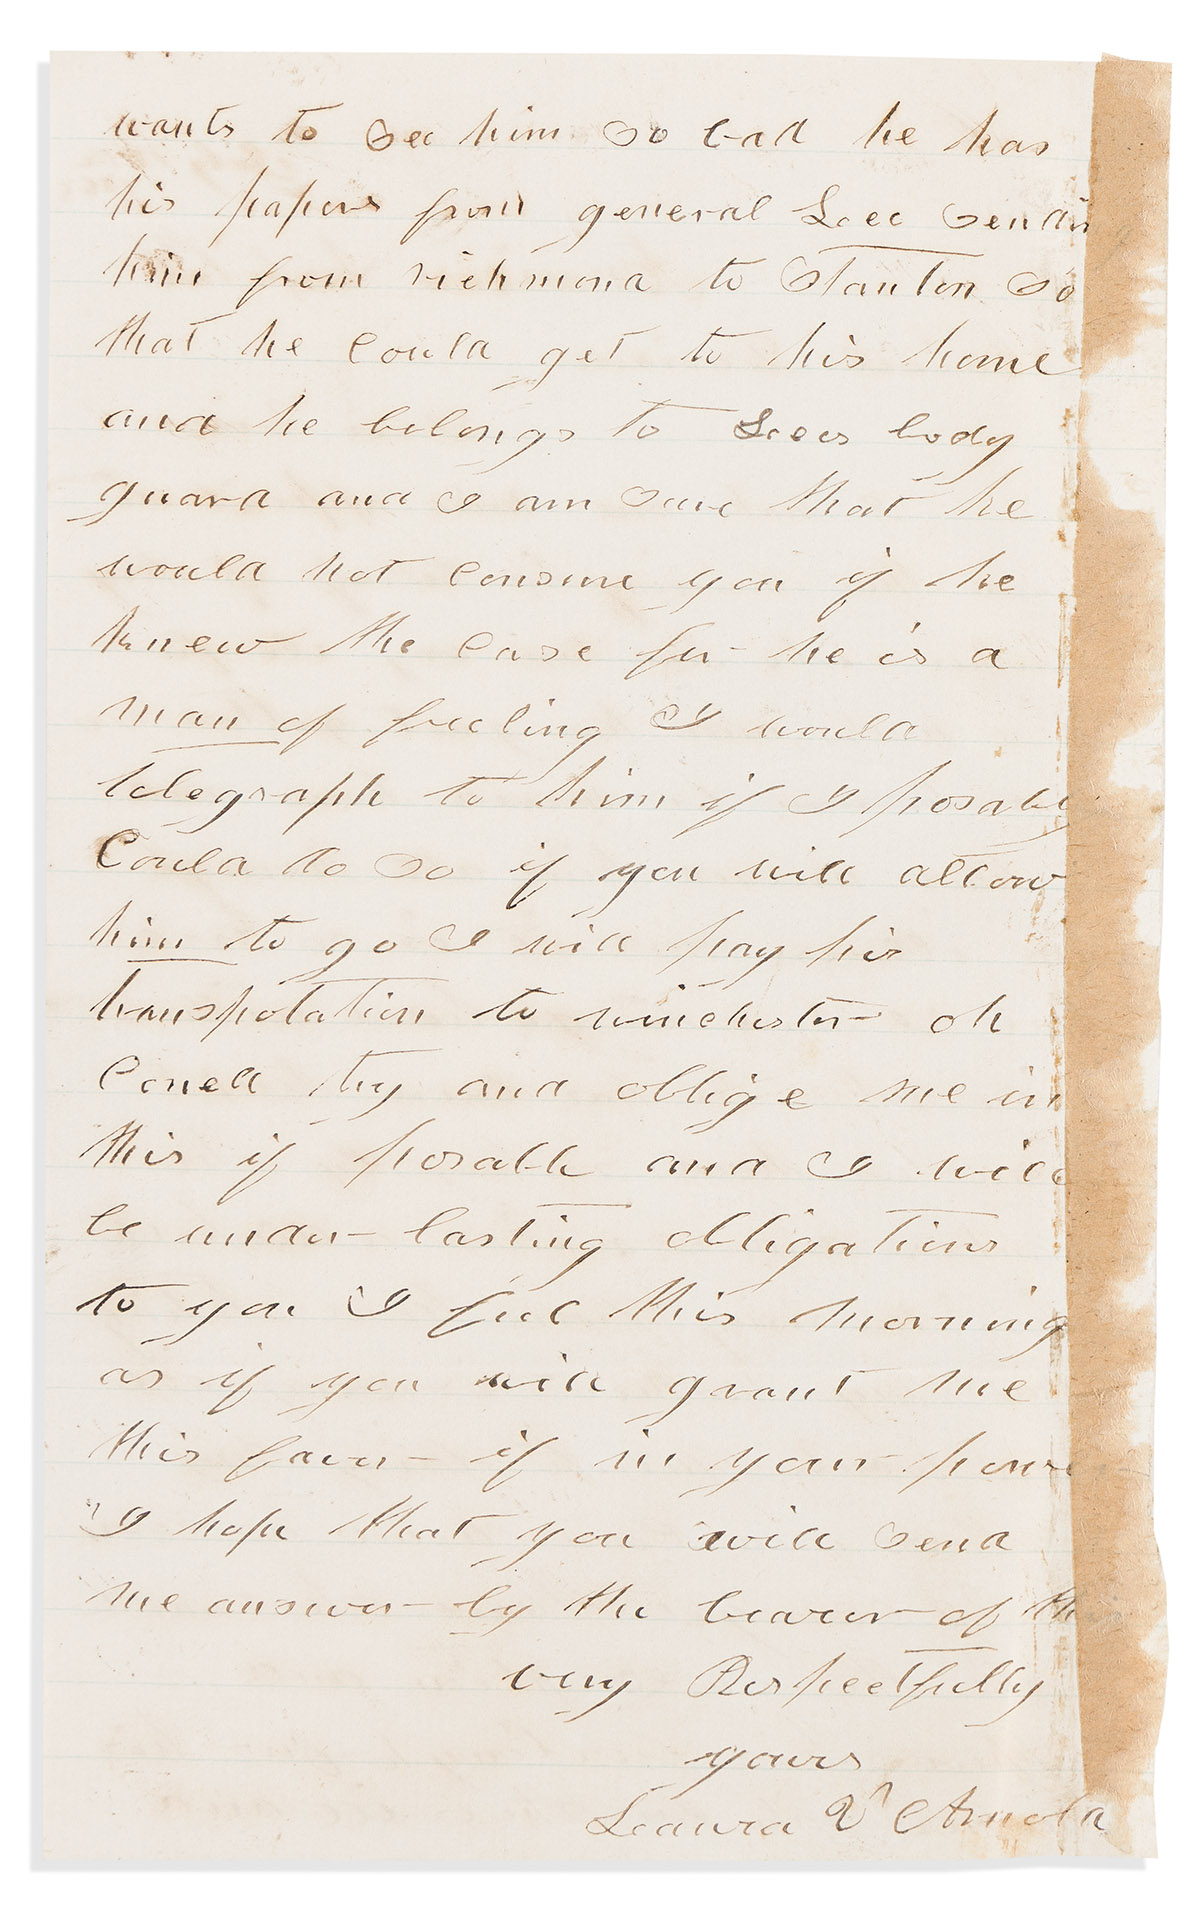 wants to see him so bad he has
his papers from general Lee sendin
him from richmond to Stanton so
that he could get to his home
and he belongs to Lees body
guard and I am sure that he
would not consure you if he
knew the case for he is a
man of feeling I would
telegraph to him if I posably
Could do so if you will allow
him to go I will pay his
transpotation to winchester oh
Conell try and oblige me in
this if posable and I will
be under lasting obligations
to you I feel this morning
as if you will grant me
this favor if in your powe
I hope that you will send
me answer by the bearer of th
very Respectfully
yours
Laura V Arnold